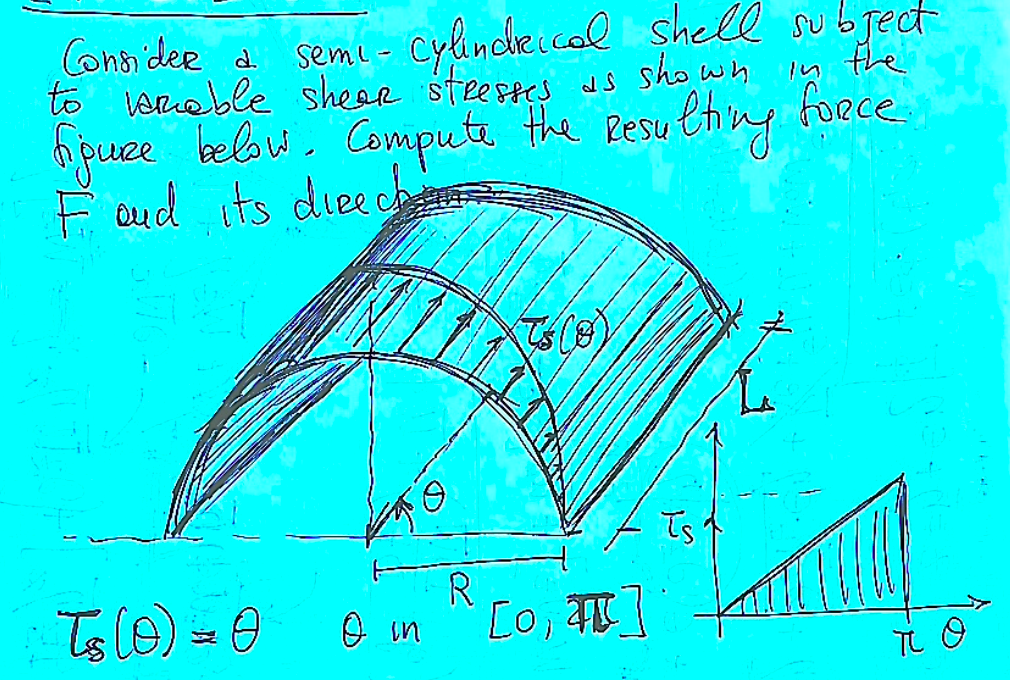 Consider a semi-cylindrical shell subject
to variable shear stresses as shown in the
figure below. Compute the resulting force
F and its direction
τs(θ)
L
θ
τs
R
τs(θ) = θ θ in [0, π]
π θ